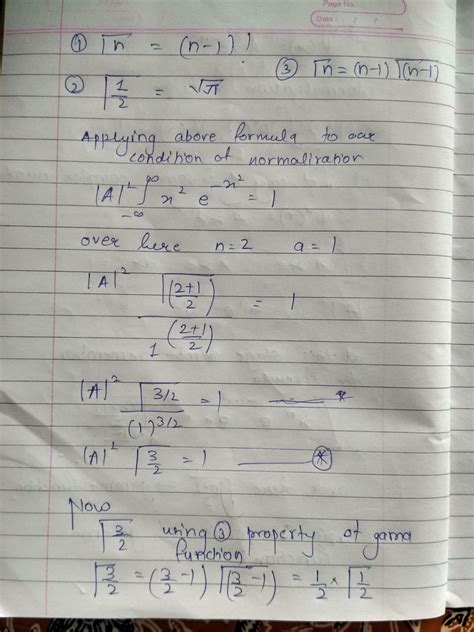 Page No.
Date : / /
① Γn = (n-1)!
③ Γn = (n-1) Γ(n-1)
② Γ1/2 = √π
Applying above formula to our
condition of normalization
|A|² ∫_{-∞}^{∞} x² e^{-x²} = 1
over here n=2 a=1
|A|² Γ((2+1)/2) / 1^((2+1)/2) = 1
|A|² Γ3/2 / (1)^{3/2} = 1 —— *
|A|² Γ3/2 = 1 —— ⊛
Now
Γ3/2 using ③ property of gama
function
Γ3/2 = (3/2 -1) Γ(3/2 -1) = 1/2 × Γ1/2